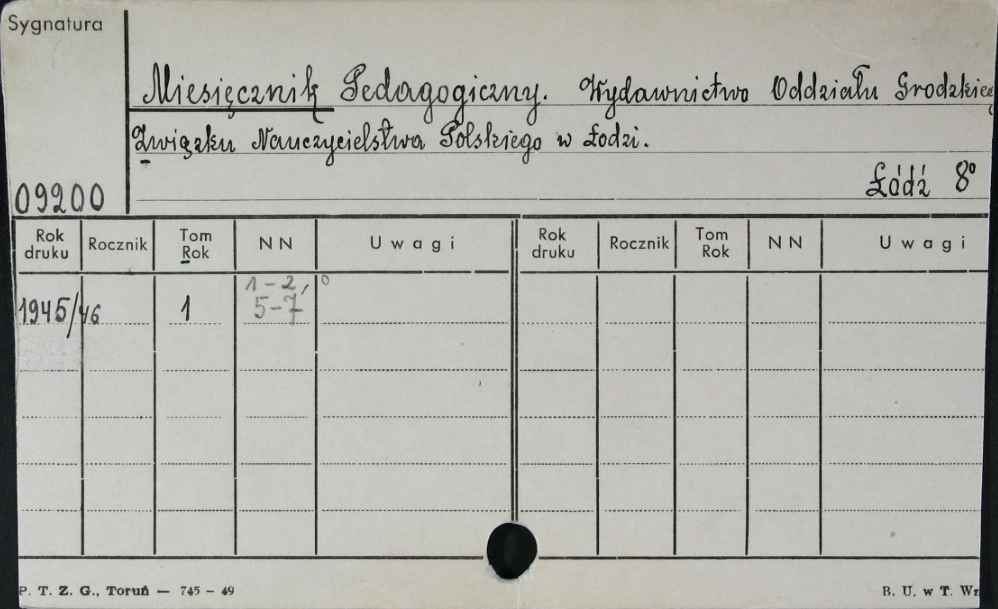 Sygnatura
Miesięcznik Pedagogiczny. Wydawnictwo Oddziału Grodzkieg
Związku Nauczycielstwa Polskiego w Łodzi.
Łódź 8°
09200
Rok druku Rocznik Tom Rok NN Uwagi Rok druku Rocznik Tom Rok NN Uwagi
1-2,
1945/46 1 5-7
P. T. Z. G., Toruń — 745 - 49 B. U. w T. Wz